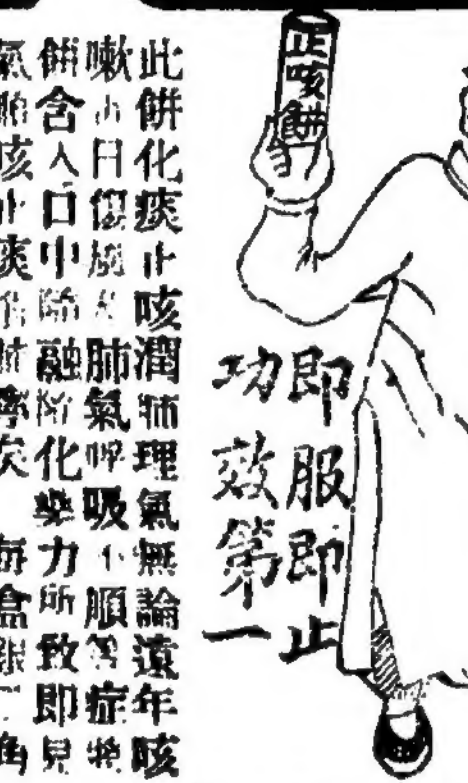 止咳餅
即服即止
功效第一
此餅化痰止咳潤肺理氣無論遠年咳
嗽 日傷 肺氣呼吸不順等症將
餅含入口中隨融隨化藥力所致即見
氣 咳止痰 每盒銀二角